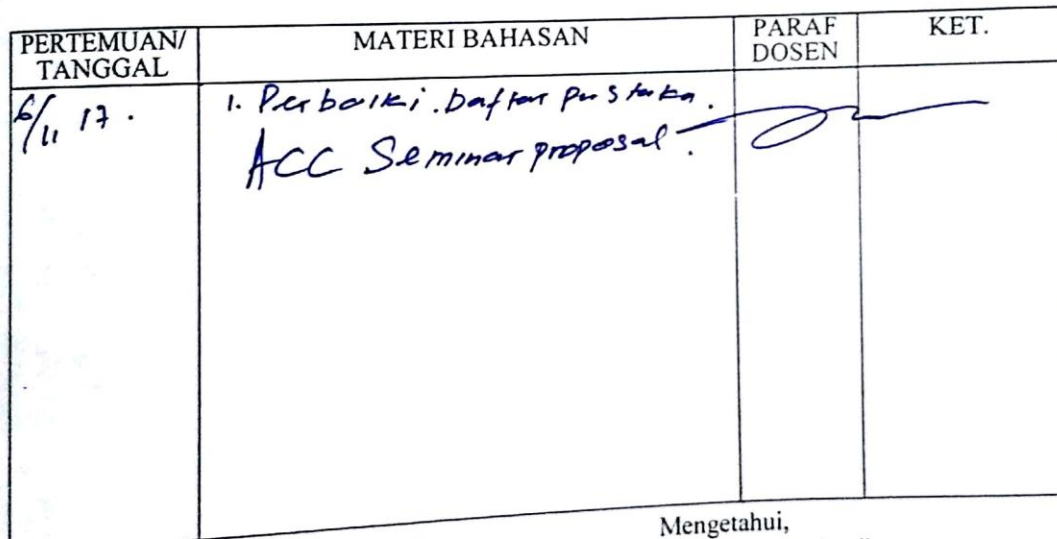 PERTEMUAN/ TANGGAL
MATERI BAHASAN
PARAF DOSEN
KET.
6/11 17.
1. Perbaiki Daftar pustaka.
ACC Seminar proposal.
Mengetahui,